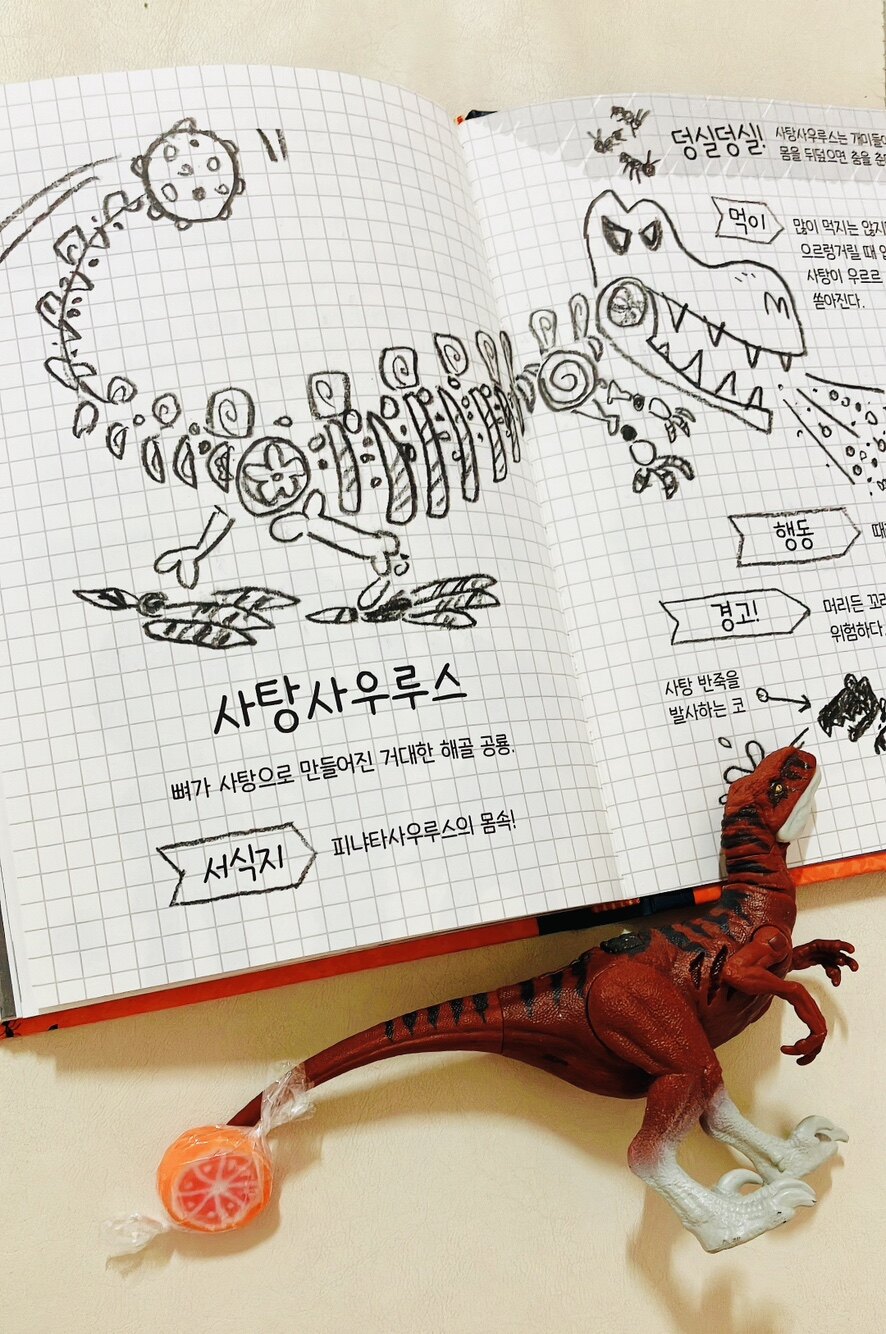 사탕사우루스
뼈가 사탕으로 만들어진 거대한 해골 공룡.
서식지
피냐타사우루스의 몸속!
덩실덩실!
사탕사우루스는 개미들이
몸을 뒤덮으면 춤을
먹이
많이 먹지는
으르렁거릴 때
사탕이 우르르
쏟아진다.
행동
경고!
머리든
위험하다.
사탕 반죽을
발사하는 코